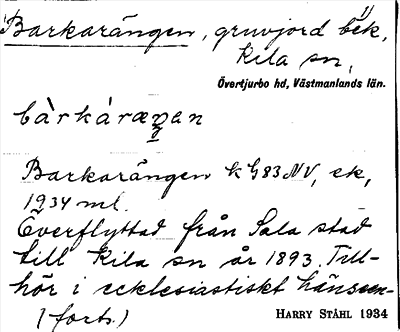 Barkarängen, gruvjord bek, 1)
Kila sn,
Övertjurbo hd, Västmanlands län.
bàrkáræŋen
Barkarängen k G83 NV, ek,
1934 ml.
Överflyttad från Sala stad
till Kila sn år 1893. Till-
hör i ecklesiastiskt hänseen-
(forts.)
HARRY STÅHL 1934